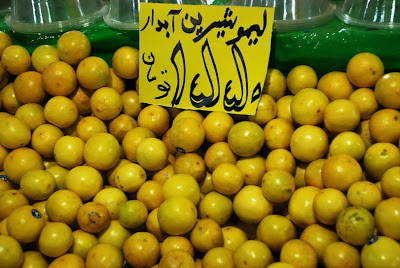 لیمو شیرین آبدار
۱۵۵۰ تومان